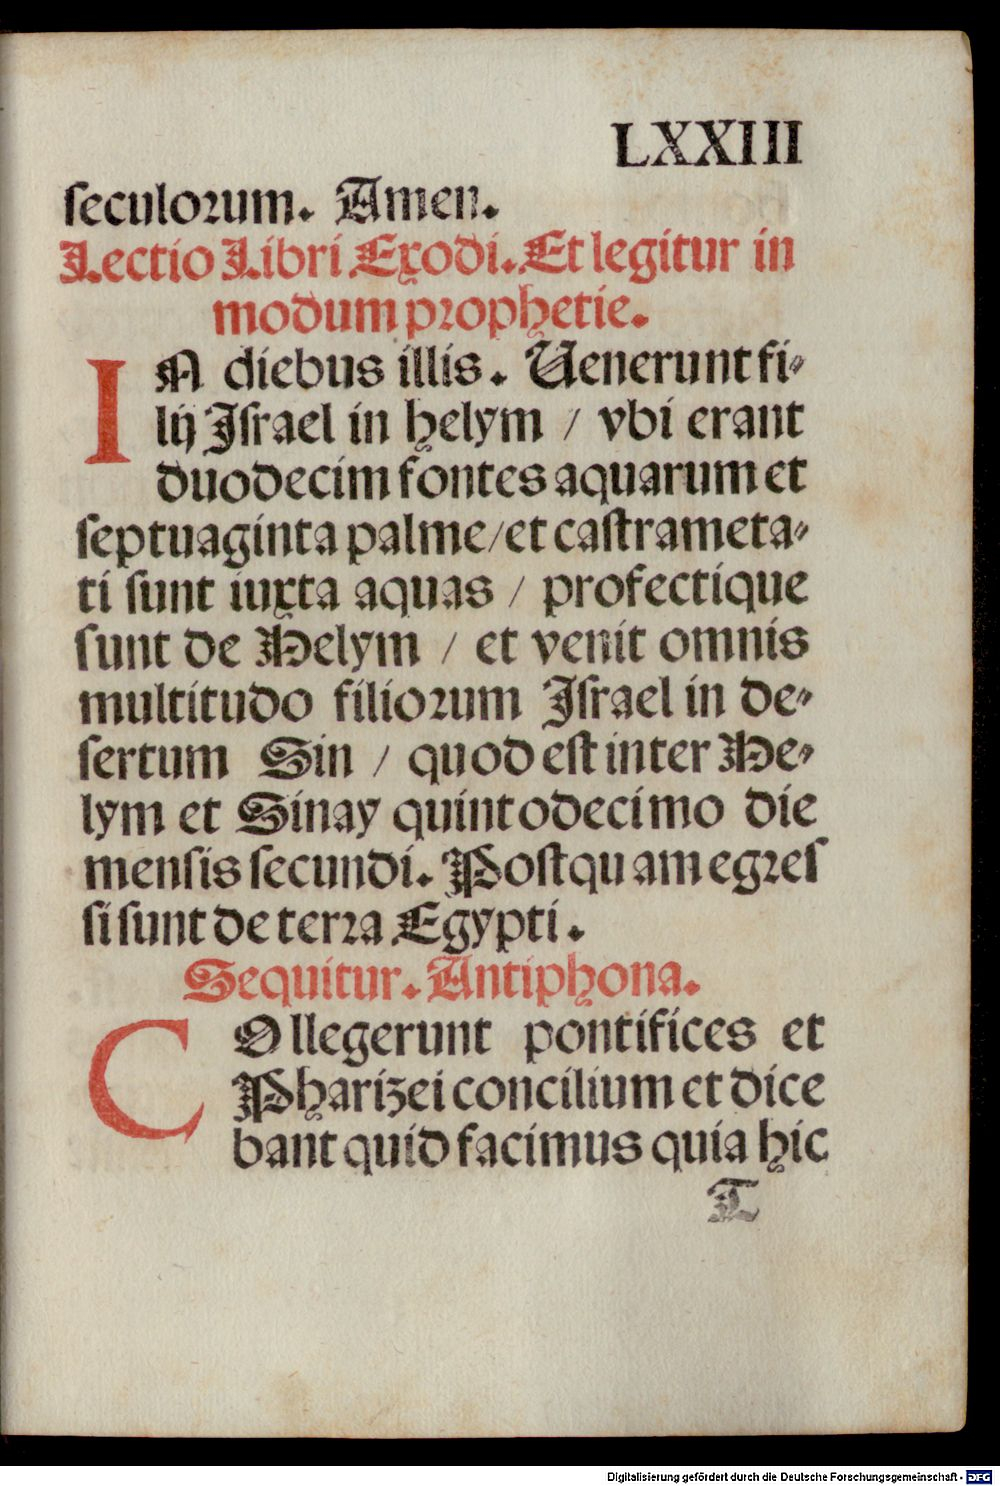 LXXIII
seculorum. Amen.
Lectio Libri Exodi. Et legitur in
modum prophetie.
IN diebus illis. Uenerunt fi-
lij Israel in helym / vbi erant
duodecim fontes aquarum et
septuaginta palme / et castrameta-
ti sunt iuxta aquas / profectique
sunt de Helym / et venit omnis
multitudo filiorum Israel in de-
sertum Sin / quod est inter He-
lym et Sinay quintodecimo die
mensis secundi. Postquam egres
si sunt de terra Egypti.
Sequitur. Antiphona.
COllegerunt pontifices et
Pharizei concilium et dice
bant quid facimus quia hic
T
Digitalisierung gefördert durch die Deutsche Forschungsgemeinschaft - DFG